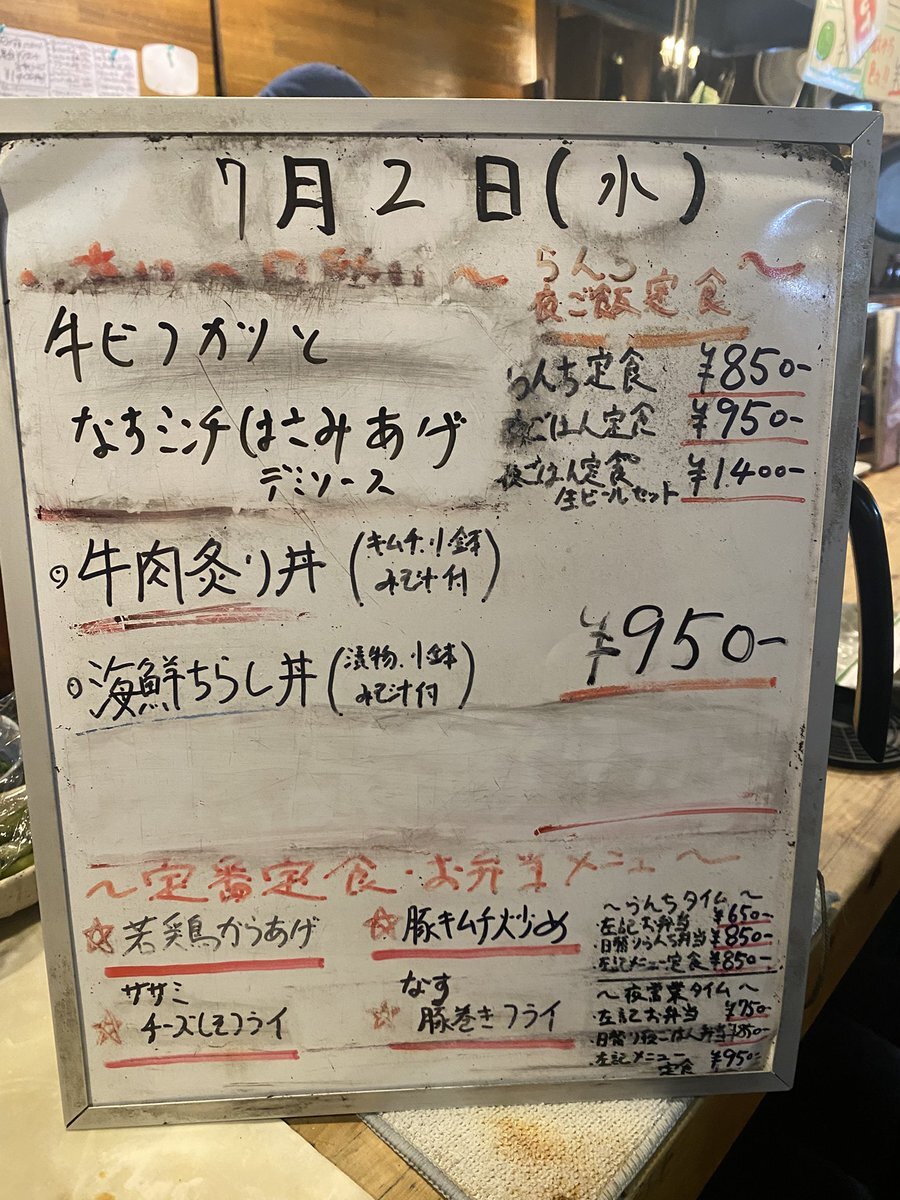 7月2日(水)
らんち
夜ご飯定食
牛ヒフカツと
なすミンチはさみあげ
デミソース
らんち定食 ¥850-
夜ごはん定食 ¥950-
夜ごはん定食
生ビールセット ¥1400-
牛肉炙り丼 (キムチ、小鉢
みそ汁付)
海鮮ちらし丼 (漬物、小鉢
みそ汁付)
¥950-
～定番定食・お弁当メニュー～
☆若鶏からあげ
☆豚キムチ炒め
ササミ
☆チーズしそフライ
なす
☆豚巻きフライ
～らんちタイム～
左記お弁当 ¥650-
日替りらんち弁当 ¥850-
左記メニュー定食 ¥850-
～夜営業タイム～
左記お弁当 ¥750-
日替り夜ごはん弁当 ¥850-
左記メニュー
定食 ¥950-